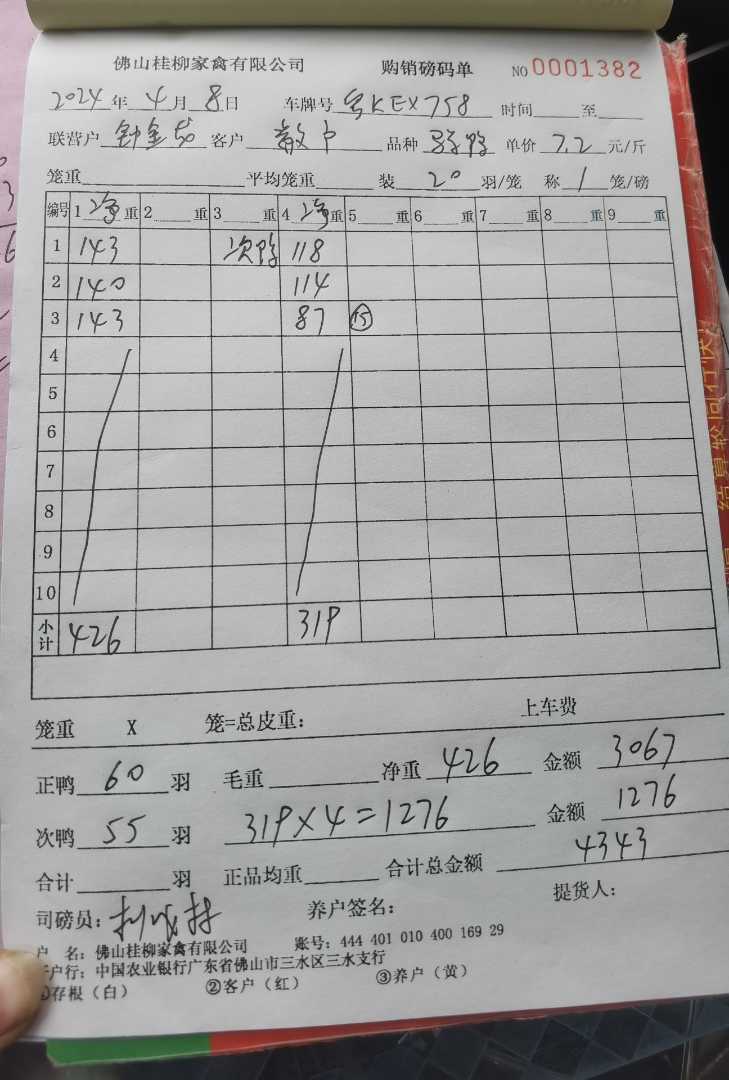 佛山桂柳家禽有限公司 购销磅码单 NO 0001382
2024年 4月 8日 车牌号 粤KEX758 时间 至
联营户 客户 散户 品种 单价 7.2 元/斤
笼重 平均笼重 装 20 羽/笼 称 1 笼/磅
编号 1 净 重 2 重 3 重 4 净 重 5 重 6 重 7 重 8 重 9 重
1 143 次鸭 118
2 140 114
3 143 87 15
4
5
6
7
8
9
10
小计 426 319
笼重 X 笼=总皮重: 上车费
正鸭 60 羽 毛重 净重 426 金额 3067
次鸭 55 羽 319×4=1276 金额 1276
合计 羽 正品均重 合计总金额 4343
司磅员: 养户签名: 提货人:
户 名: 佛山桂柳家禽有限公司 账号: 444 401 010 400 169 29
户行: 中国农业银行广东省佛山市三水区三水支行
①存根(白) ②客户(红) ③养户(黄)